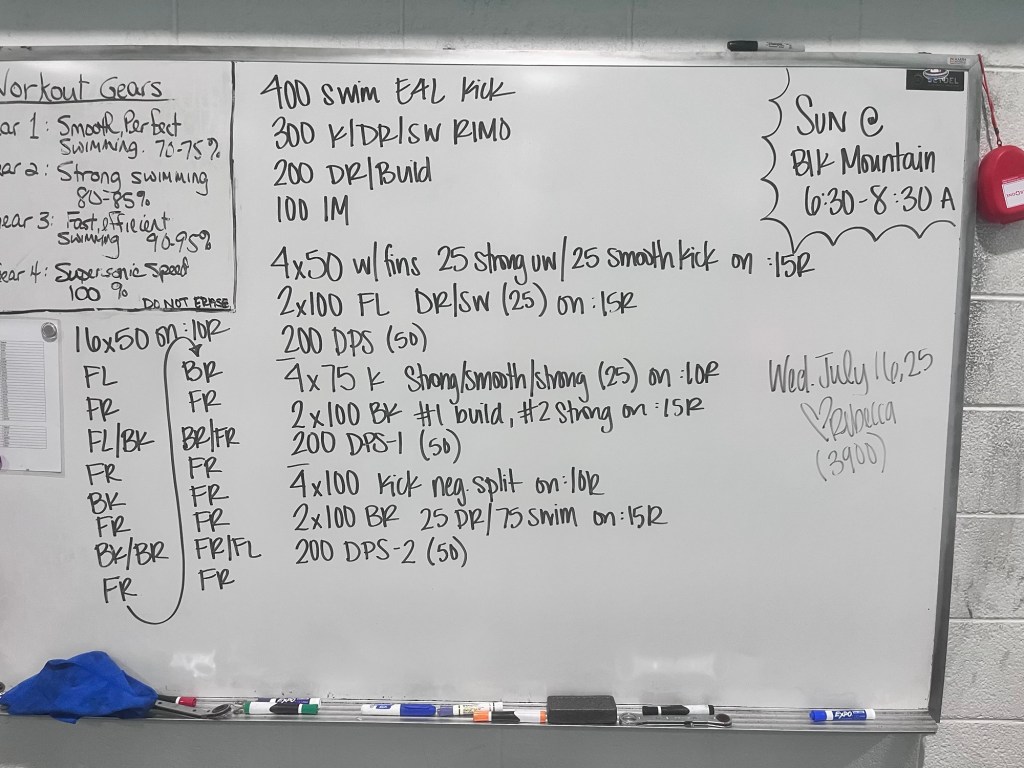 Workout Gears
ear 1: Smooth, Perfect
Swimming. 70-75%
ear 2: Strong swimming
80-85%
ear 3: Fast, efficient
Swimming 90-95%
ear 4: Supersonic Speed
100 %
DO NOT ERASE
400 swim E4L Kick
300 K/DR/SW RIMO
200 DR/Build
100 IM
4x50 w/ fins 25 strong uw/ 25 smooth kick on :15R
2x100 FL DR/SW (25) on :15R
200 DPS (50)
4x75 K Strong/smooth/strong (25) on :10R
2x100 BK #1 build, #2 Strong on :15R
200 DPS-1 (50)
4x100 Kick neg. split on :10R
2x100 BR 25 DR/75 swim on :15R
200 DPS-2 (50)
16x50 on :10R
FL
FR
FL/BK
FR
BK
FR
BK/BR
FR
BR
FR
BR/FR
FR
FR
FR
FR/FL
FR
SUN @
Blk Mountain
6:30-8:30 A
Wed. July 16, 25
♡Rubecca
(3900)
EXPO